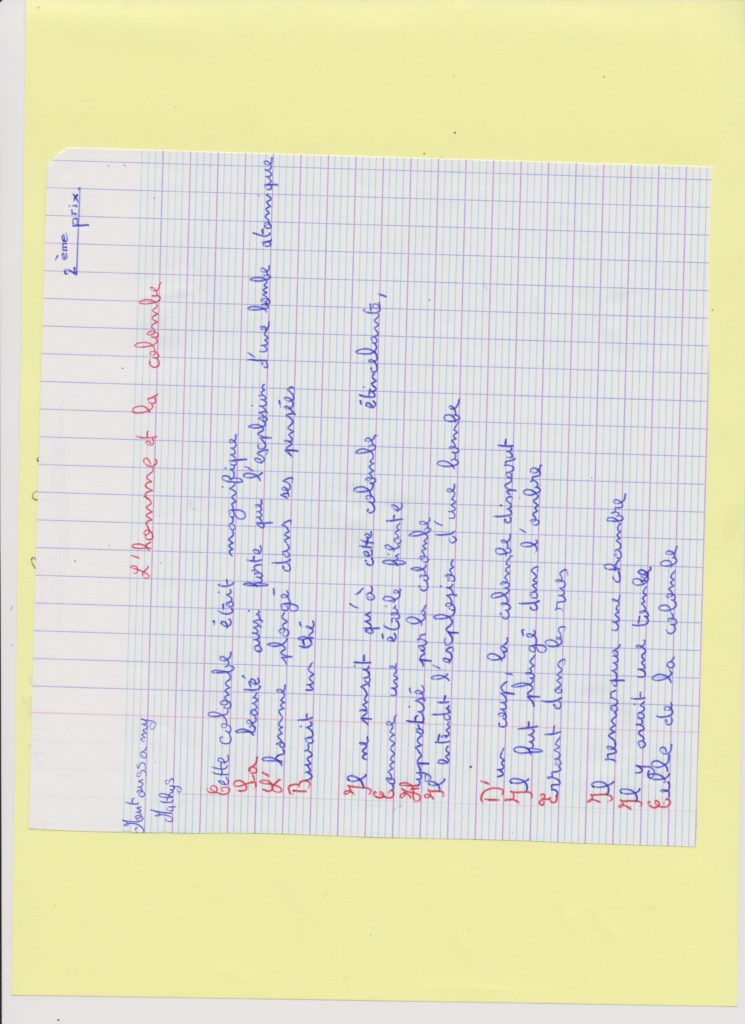 2ème prix
L'homme et la colombe
Moutoussamy
Mathys
Cette colombe était magnifique
Sa beauté aussi forte que l'explosion d'une bombe atomique
L'homme plongé dans ses pensées
Buvait un thé
Il ne pensait qu'à cette colombe étincelante,
Comme une étoile filante
Hypnotisé par la colombe
Il entendit l'explosion d'une bombe
D'un coup, la colombe disparut
Il fut plongé dans l'ombre
Errant dans les rues
Il remarqua une chambre
Il y avait une tombe
Celle de la colombe